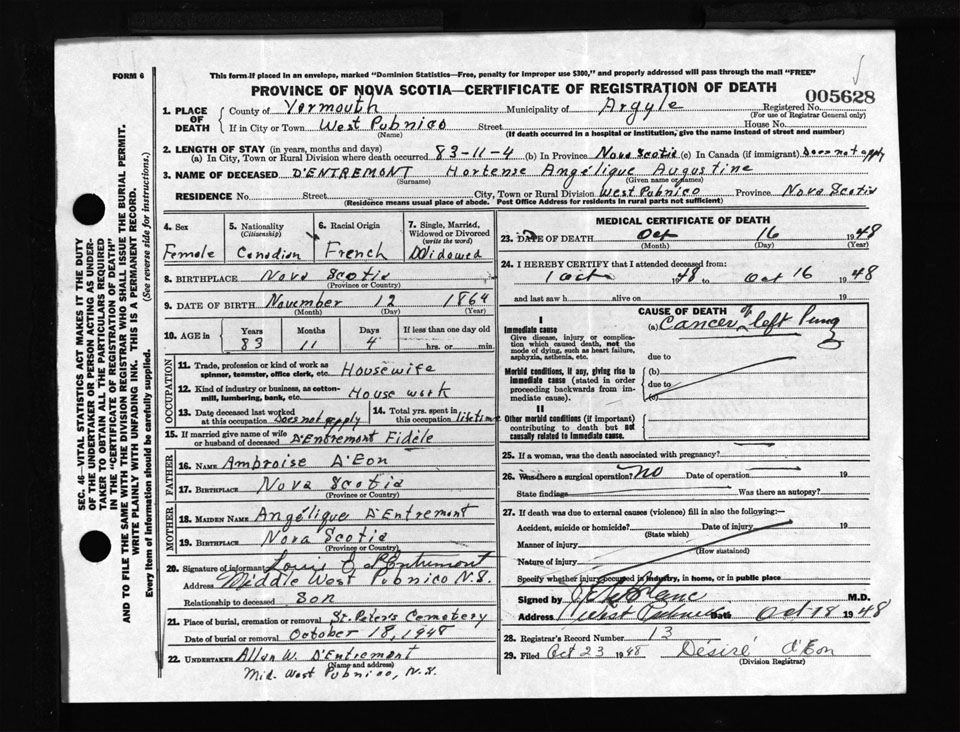 FORM 6
This form if placed in an envelope, marked "Dominion Statistics—Free, penalty for improper use $300," and properly addressed will pass through the mail "FREE"
PROVINCE OF NOVA SCOTIA—CERTIFICATE OF REGISTRATION OF DEATH
005628
1. PLACE OF DEATH County of Yarmouth Municipality of Argyle Registered No.
(For use of Registrar General only)
If in City or Town West Pubnico Street House No.
(Name) (If death occurred in a hospital or institution, give the name instead of street and number)
2. LENGTH OF STAY (in years, months and days)
(a) In City, Town or Rural Division where death occurred 83-11-4 (b) In Province Nova Scotia (c) In Canada (if immigrant) Does not apply
3. NAME OF DECEASED D'ENTREMONT Hortense Angélique Augustine
(Surname) (Given name or names)
RESIDENCE No. Street City, Town or Rural Division West Pubnico Province Nova Scotia
(Residence means usual place of abode. Post Office Address for residents in rural parts not sufficient)
4. Sex 5. Nationality (Citizenship) 6. Racial Origin 7. Single, Married, Widowed or Divorced (write the word)
Female Canadian French Widowed
8. BIRTHPLACE Nova Scotia
(Province or Country)
9. DATE OF BIRTH November 12 1864
(Month) (Day) (Year)
10. AGE in Years Months Days If less than one day old
83 11 4 hrs. or min.
OCCUPATION
11. Trade, profession or kind of work as spinner, teamster, office clerk, etc. Housewife
12. Kind of industry or business, as cotton-mill, lumbering, bank, etc. House work
13. Date deceased last worked at this occupation Does not apply 14. Total yrs. spent in this occupation lifetime
15. If married give name of wife or husband of deceased D'Entremont Fidèle
FATHER
16. NAME Ambroise D'Eon
17. BIRTHPLACE Nova Scotia
(Province or Country)
MOTHER
18. MAIDEN NAME Angélique D'Entremont
19. BIRTHPLACE Nova Scotia
(Province or Country)
20. Signature of informant Louis C D'Entremont
Address Middle West Pubnico N.S.
Relationship to deceased Son
21. Place of burial, cremation or removal St. Peter's Cemetery
Date of burial or removal October 18, 1948
22. UNDERTAKER Allan W. D'Entremont
(Name and address)
Mid. West Pubnico, N.S.
MEDICAL CERTIFICATE OF DEATH
23. DATE OF DEATH Oct 16 1948
(Month) (Day) (Year)
24. I HEREBY CERTIFY that I attended deceased from:
1 Oct 1948 to Oct 16 1948
and last saw h alive on 19
CAUSE OF DEATH
I
Immediate cause
Give disease, injury or complication which caused death, not the mode of dying, such as heart failure, asphyxia, asthenia, etc.
(a) Cancer of left lung
due to
Morbid conditions, if any, giving rise to immediate cause (stated in order proceeding backwards from immediate cause).
(b)
due to
(c)
II
Other morbid conditions (if important) contributing to death but not causally related to immediate cause.
25. If a woman, was the death associated with pregnancy?
26. Was there a surgical operation? No Date of operation 19
State findings Was there an autopsy?
27. If death was due to external causes (violence) fill in also the following:—
Accident, suicide or homicide? Date of injury 19
(State which)
Manner of injury
(How sustained)
Nature of injury
Specify whether injury occurred in industry, in home, or in public place
Signed by M.D.
Address West Pubnico Date Oct 18 1948
28. Registrar's Record Number 13
29. Filed Oct 23 1948 Désiré d'Eon
(Division Registrar)
SEC. 46—VITAL STATISTICS ACT MAKES IT THE DUTY
OF THE UNDERTAKER OR PERSON ACTING AS UNDER-
TAKER TO OBTAIN ALL THE PARTICULARS REQUIRED
IN THE "CERTIFICATE OF REGISTRATION OF DEATH"
AND TO FILE THE SAME WITH THE DIVISION REGISTRAR WHO SHALL ISSUE THE BURIAL PERMIT.
WRITE PLAINLY WITH UNFADING INK. THIS IS A PERMANENT RECORD.
Every item of information should be carefully supplied. (See reverse side for instructions.)